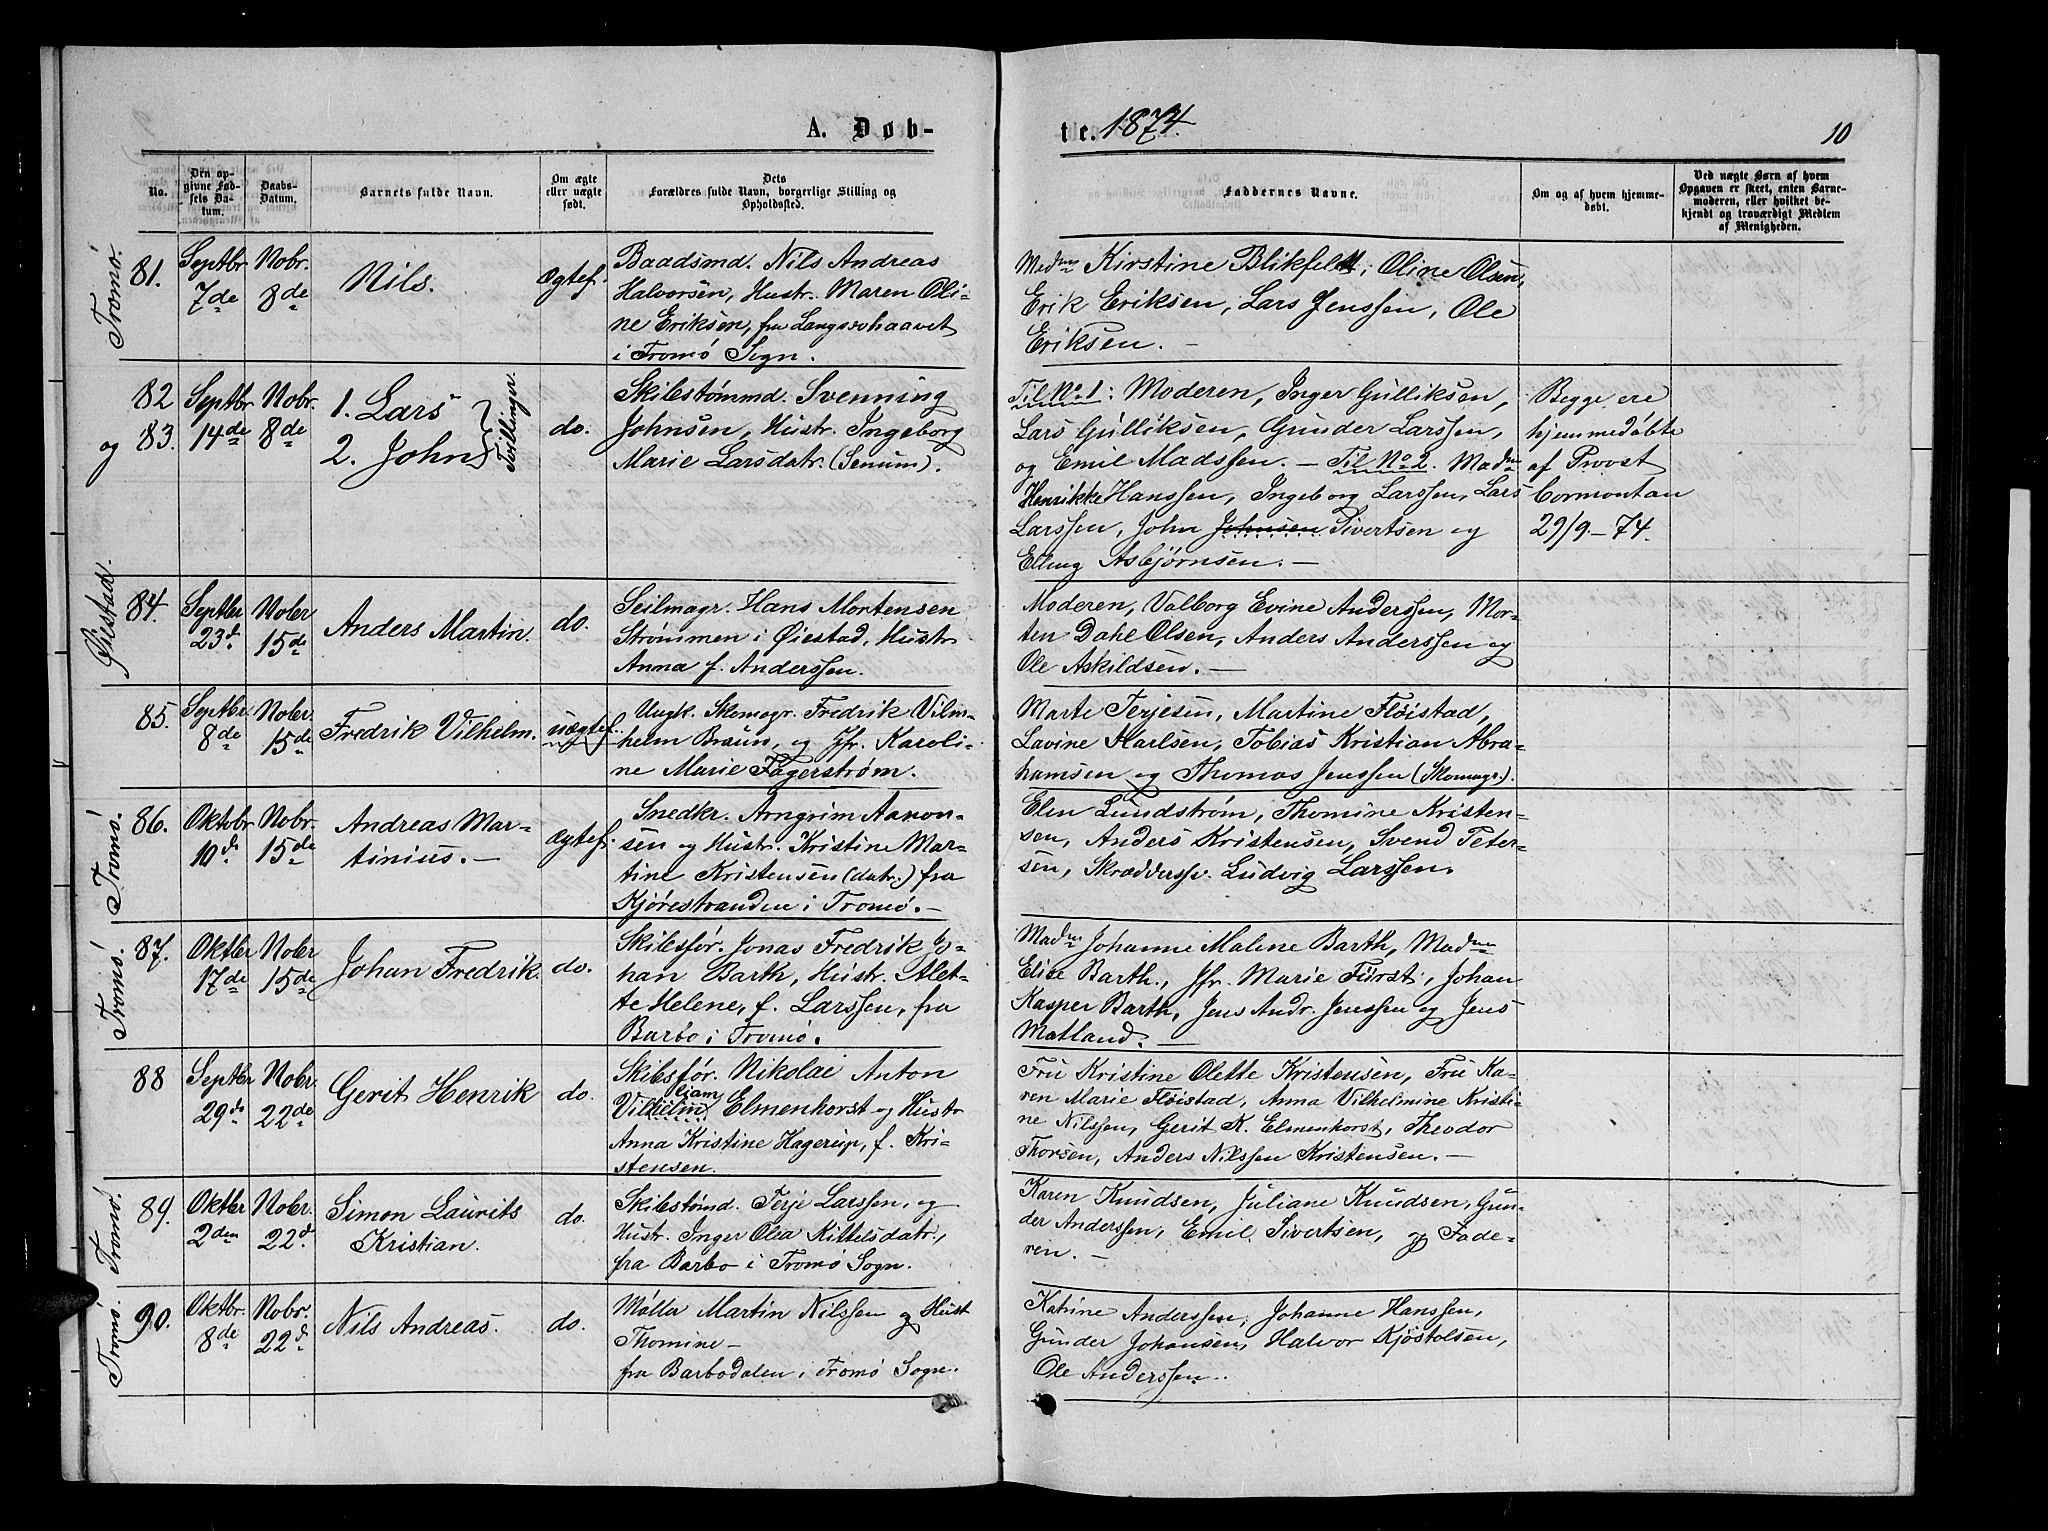 A. Døb-
te. 1874.
10
No.
Den op-
givne Fød-
sels Da-
tum.
Daabs-
Datum.
Barnets fulde Navn.
Om ægte
eller uægte
født.
Dets
Forældres fulde Navn, borgerlige Stilling og
Opholdssted.
Faddernes Navne.
Om og af hvem hjemme-
døbt.
Ved uægte Børn af hvem
Opgaven er skeet, enten Barne-
moderen, eller hvilket be-
kjendt og troværdigt Medlem
af Menigheden.
Tromø.
81.
Septbr.
7de
Nobr.
8de
Nils.
Ægtef.
Baadsmd. Nils Andreas
Halvorsen, Hustr. Maren Oli-
ne Eriksen, fra
i Tromø Sogn.
Madm Kirstine Blikfeldt, Oline Olsen,
Erik Eriksen, Lars Jenssen, Ole
Eriksen. —
82
og 83.
Septbr
14de
Nobr.
8de
1. Lars
2. John
Tvillinger.
do.
Skibstømmd. Svenning
Johnsen, Hustr. Ingeborg
Marie Larsdatr. (Senum).
Til No. 1: Moderen, Inger Gulliksen,
Lars Gulliksen, Gunder Larssen,
og Emil Madssen. — Til No 2. Madm
Henrikke Hanssen, Ingeborg Larssen, Lars
Larssen, John Johnsen Sivertsen og
Elling Asbjørnsen. —
Begge ere
hjemmedøbte
af Provst
Cormontan
29/9 - 74.
Øiestad.
84.
Septbr
23d.
Nobr
15de
Anders Martin.
do.
Seilmagr. Hans Mortensen
Strømmen i Øiestad, Hustr
Anna f. Anderssen.
Moderen, Valborg Evine Anderssen, Mor-
ten Dahl Olsen, Anders Anderssen og
Ole Askildsen. —
85.
Septbr.
8de
Nobr.
15de
Fredrik Vilhelm.
uægtef.
Ungk. Skomagr. Fredrik Vil-
helm Braun, og Jfr. Karoli-
ne Marie Fagerstrøm.
Marte Terjesen, Martine Fløistad,
Lavine Karlsen, Tobias Kristian Abra-
hamsen og Thomas Jenssen (Skomagr.).
Tromø.
86.
Oktobr
10d.
Nobr.
15de
Andreas Mar-
tinius. —
Ægtef.
Snedkr. Arngrim Aanon-
sen og Hustr. Kristine Mar-
tine Kristensen (datr.) fra
Kjørestranden i Tromø. —
Elen Lundstrøm, Thomine Kristen-
sen, Anders Kristensen, Svend Peter-
sen, Skræddersv. Ludvig Larssen.
Tromø.
87.
Oktbr
17de
Nobr
15de
Johan Fredrik.
do.
Skibsfør. Jonas Fredrik Jo-
han Barth, Hustr. Alet-
te Helene, f. Larssen, fra
Barbo i Tromø.
Madm Johanne Malene Barth, Madm
Elise Barth., Jfr. Marie Fürst, Johan
Kasper Barth, Jens Andr. Jenssen og Jens
Matland. —
88
Septbr
29de
Nobr.
22de
Gerit Henrik
do.
Skibsfør. Nikolai Anton
liam
Vilhelm Elmenhorst og Hustr
Anna Kristine Hagerup, f. Kri-
stensen.
Fru Kristine Olette Kristensen, Fru Ka-
ren Marie Fløistad, Anna Vilhelmine Kristi-
ne Nilssen, Gerit K. Elmenhorst, Theodor
Thorsen, Anders Nilssen Kristensen. —
Tromø.
89.
Oktbr
2den
Nobr.
22d.
Simon Laurits
Kristian.
do.
Skibstømd. Terje Larssen, og
Hustr. Inger Olea Kittelsdatr.,
fra Barbo i Tromø Sogn.
Karen Knudsen, Juliane Knudsen, Gun-
der Anderssen, Emil Sivertsen, og Fade-
ren. —
Tromø.
90.
Oktbr.
8de
Nobr.
22d
Nils Andreas.
do.
Møller Martin Nilssen og Hust
Thomine —
fra Barbodalen i Tromø Sogn.
Katrine Anderssen, Johanne Hanssen,
Gunder Johansen, Halvor Kjøstolsen,
Ole Anderssen.